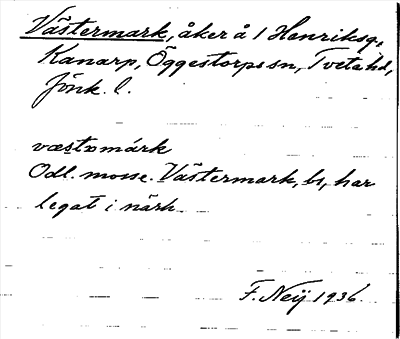 Västermark, åker å 1 Henriksg.,
Kanarp, Öggestorps sn, Tveta hd,
Jönk. l.
væstomárk
Odl. mosse. Västermark, bs, har
legat i närh.
F. Neij 1936.